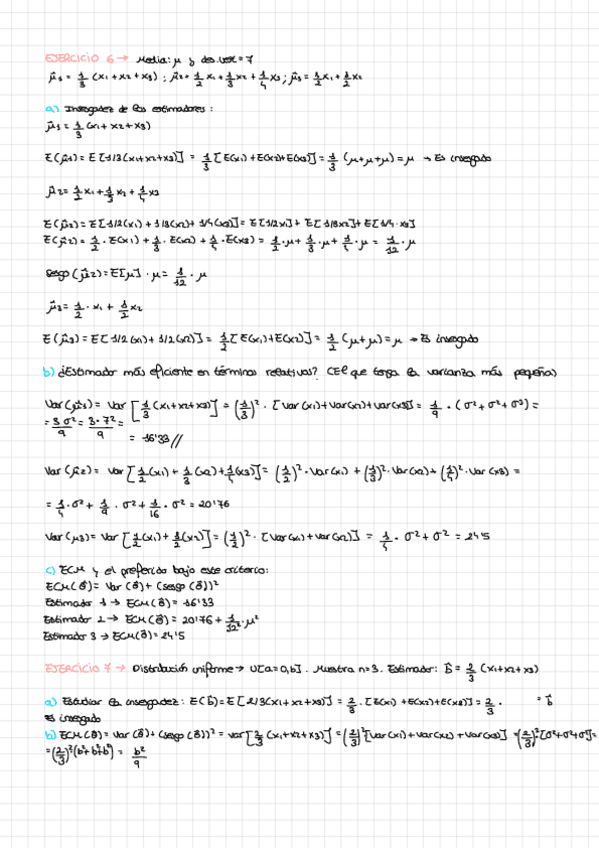 EJERCICIO 6 → Media: μ y des.
μ̂₁ = 1/3 (x₁ + x₂ + x₃) ; μ̂₂ = 1/2 x₁ + 1/3 x₂ + 1/4 x₃ ; μ̂₃ = 1/2 x₁ + 1/2 x₂
a) Insesgadez de los estimadores:
μ̂₁ = 1/3 (x₁ + x₂ + x₃)
E(μ̂₁) = E[1/3(x₁+x₂+x₃)] = 1/3 [E(x₁) + E(x₂) + E(x₃)] = 1/3 (μ+μ+μ) = μ → Es insesgado
μ̂₂ = 1/2 x₁ + 1/3 x₂ + 1/4 x₃
E(μ̂₂) = E[1/2(x₁) + 1/3(x₂) + 1/4(x₃)] = E[1/2x₁] + E[1/3x₂] + E[1/4·x₃]
E(μ̂₂) = 1/2 · E(x₁) + 1/3 · E(x₂) + 1/4 · E(x₃) = 1/2·μ + 1/3·μ + 1/4·μ = 1/12 · μ
Sesgo(μ̂₂) = E[μ] · μ = 1/12 · μ
μ̂₃ = 1/2 · x₁ + 1/2 x₂
E(μ̂₃) = E[1/2(x₁) + 1/2(x₂)] = 1/2 [E(x₁) + E(x₂)] = 1/2 (μ+μ) = μ → Es insesgado
b) ¿Estimador más eficiente en términos relativos? (El que tenga la varianza más pequeña)
Var(μ̂₁) = Var [1/3 (x₁+x₂+x₃)] = (1/3)² · [Var(x₁) + Var(x₂) + Var(x₃)] = 1/9 · (σ² + σ² + σ²) =
= 3σ²/9 = 3·7²/9 =
= 16'33 //
Var(μ̂₂) = Var [1/2(x₁) + 1/3(x₂) + 1/4(x₃)] = (1/2)² · Var(x₁) + (1/3)² · Var(x₂) + (1/4)² · Var(x₃) =
= 1/4·σ² + 1/9 · σ² + 1/16 · σ² = 20'76
Var(μ₃) = Var [1/2(x₁) + 1/2(x₂)] = (1/2)² · [Var(x₁) + Var(x₂)] = 1/4 · σ² + σ² = 24'5
c) ECM y el preferido bajo este criterio:
ECM(θ̂) = Var(θ̂) + (sesgo(θ̂))²
Estimador 1 → ECM(θ̂) = 16'33
Estimador 2 → ECM(θ̂) = 20'76 + 1/12² · μ²
Estimador 3 → ECM(θ̂) = 24'5
EJERCICIO 7 → Distribución uniforme → U[a=0,b]. Muestra n=3. Estimador: b̂ = 2/3 (x₁+x₂+x₃)
a) Estudiar la insesgadez: E(b̂) = E[2/3(x₁+x₂+x₃)] = 2/3 · [E(x₁) + E(x₂) + E(x₃)] = 2/3 · = b̂
Es insesgado
b) ECM(θ̂) = Var(θ̂) + (sesgo(θ̂))² = Var[2/3 (x₁+x₂+x₃)] = (2/3)² [Var(x₁) + Var(x₂) + Var(x₃)] = (2/3)² [σ²+σ²+σ²] =
= (2/3)² (b²+b²+b²) = b²/9